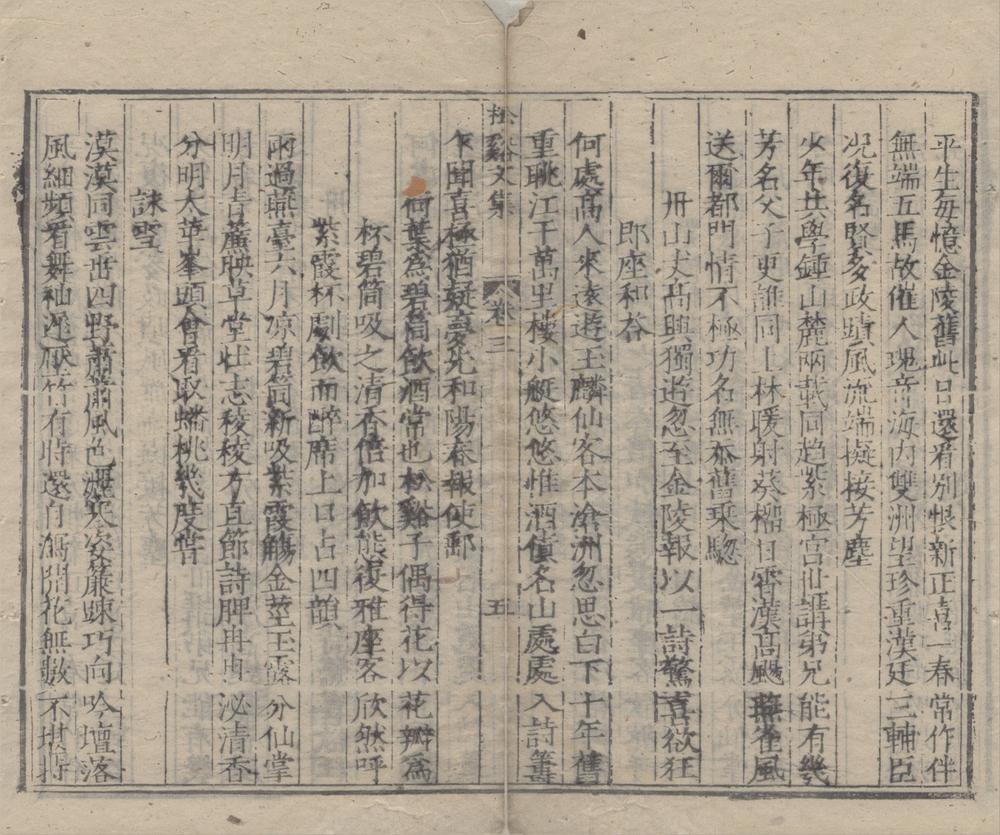 平生每憶金陵舊此日還看別恨新正喜一春常作伴
無端五馬故催人瑰奇海內雙洲望珍重漢廷三輔臣
况復名賢多政蹟風流端擬接芳塵
少年共學鍾山麓兩載同趨紫極宮世講弟兄能有幾
芳名父子更誰同上林暖射葵榴日霄漢高飄燕雀風
送爾都門情不極功名無忝舊乘驄
冊山丈高興獨遊忽至金陵報以一詩驚喜欲狂
即座和荅
何處高人來遠遊玉麟仙客本滄洲忽思白下十年舊
重眺江干萬里樓小艇悠悠惟酒債名山處處入詩籌
乍聞喜極猶疑夢先和陽春報使郵
松谿文集 卷三 五
何葉為碧筒飲酒常也松谿子偶得花以花瓣為
杯碧筒吸之清香倍加飲能復雅座客欣然呼
紫霞杯劇飲而醉席上口占四韻
雨過燕臺六月凉碧筒新吸紫霞觴金莖玉露分仙掌
明月青簾映草堂壯志稜稜方直節詩脾冉冉泌清香
分明太華峯頭會看取蟠桃幾度嘗
詠雪
漠漠同雲世四野肅蕭風色灑寒姿簾疎巧向吟壇落
風細頻看舞袖遲厭竹有時還自瀉開花無數不堪持